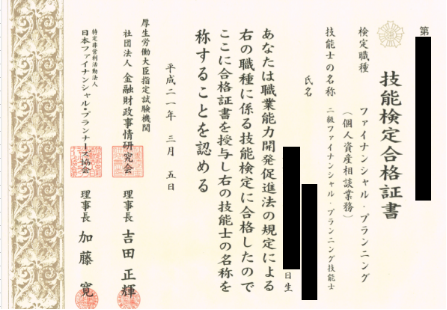 第
技能検定合格証書
検定職種 ファイナンシャル・プランニング
（個人資産相談業務）
技能士の名称 二級ファイナンシャル・プランニング技能士
氏名
日生
あなたは職業能力開発促進法の規定による
右の職種に係る技能検定に合格したので
ここに合格証書を授与し右の技能士の名称を
称することを認める
平成二一年 三月 五日
厚生労働大臣指定試験機関
社団法人 金融財政事情研究会 理事長 吉田 正輝
特定非営利活動法人
日本ファイナンシャル・プランナーズ協会 理事長 加藤 寛